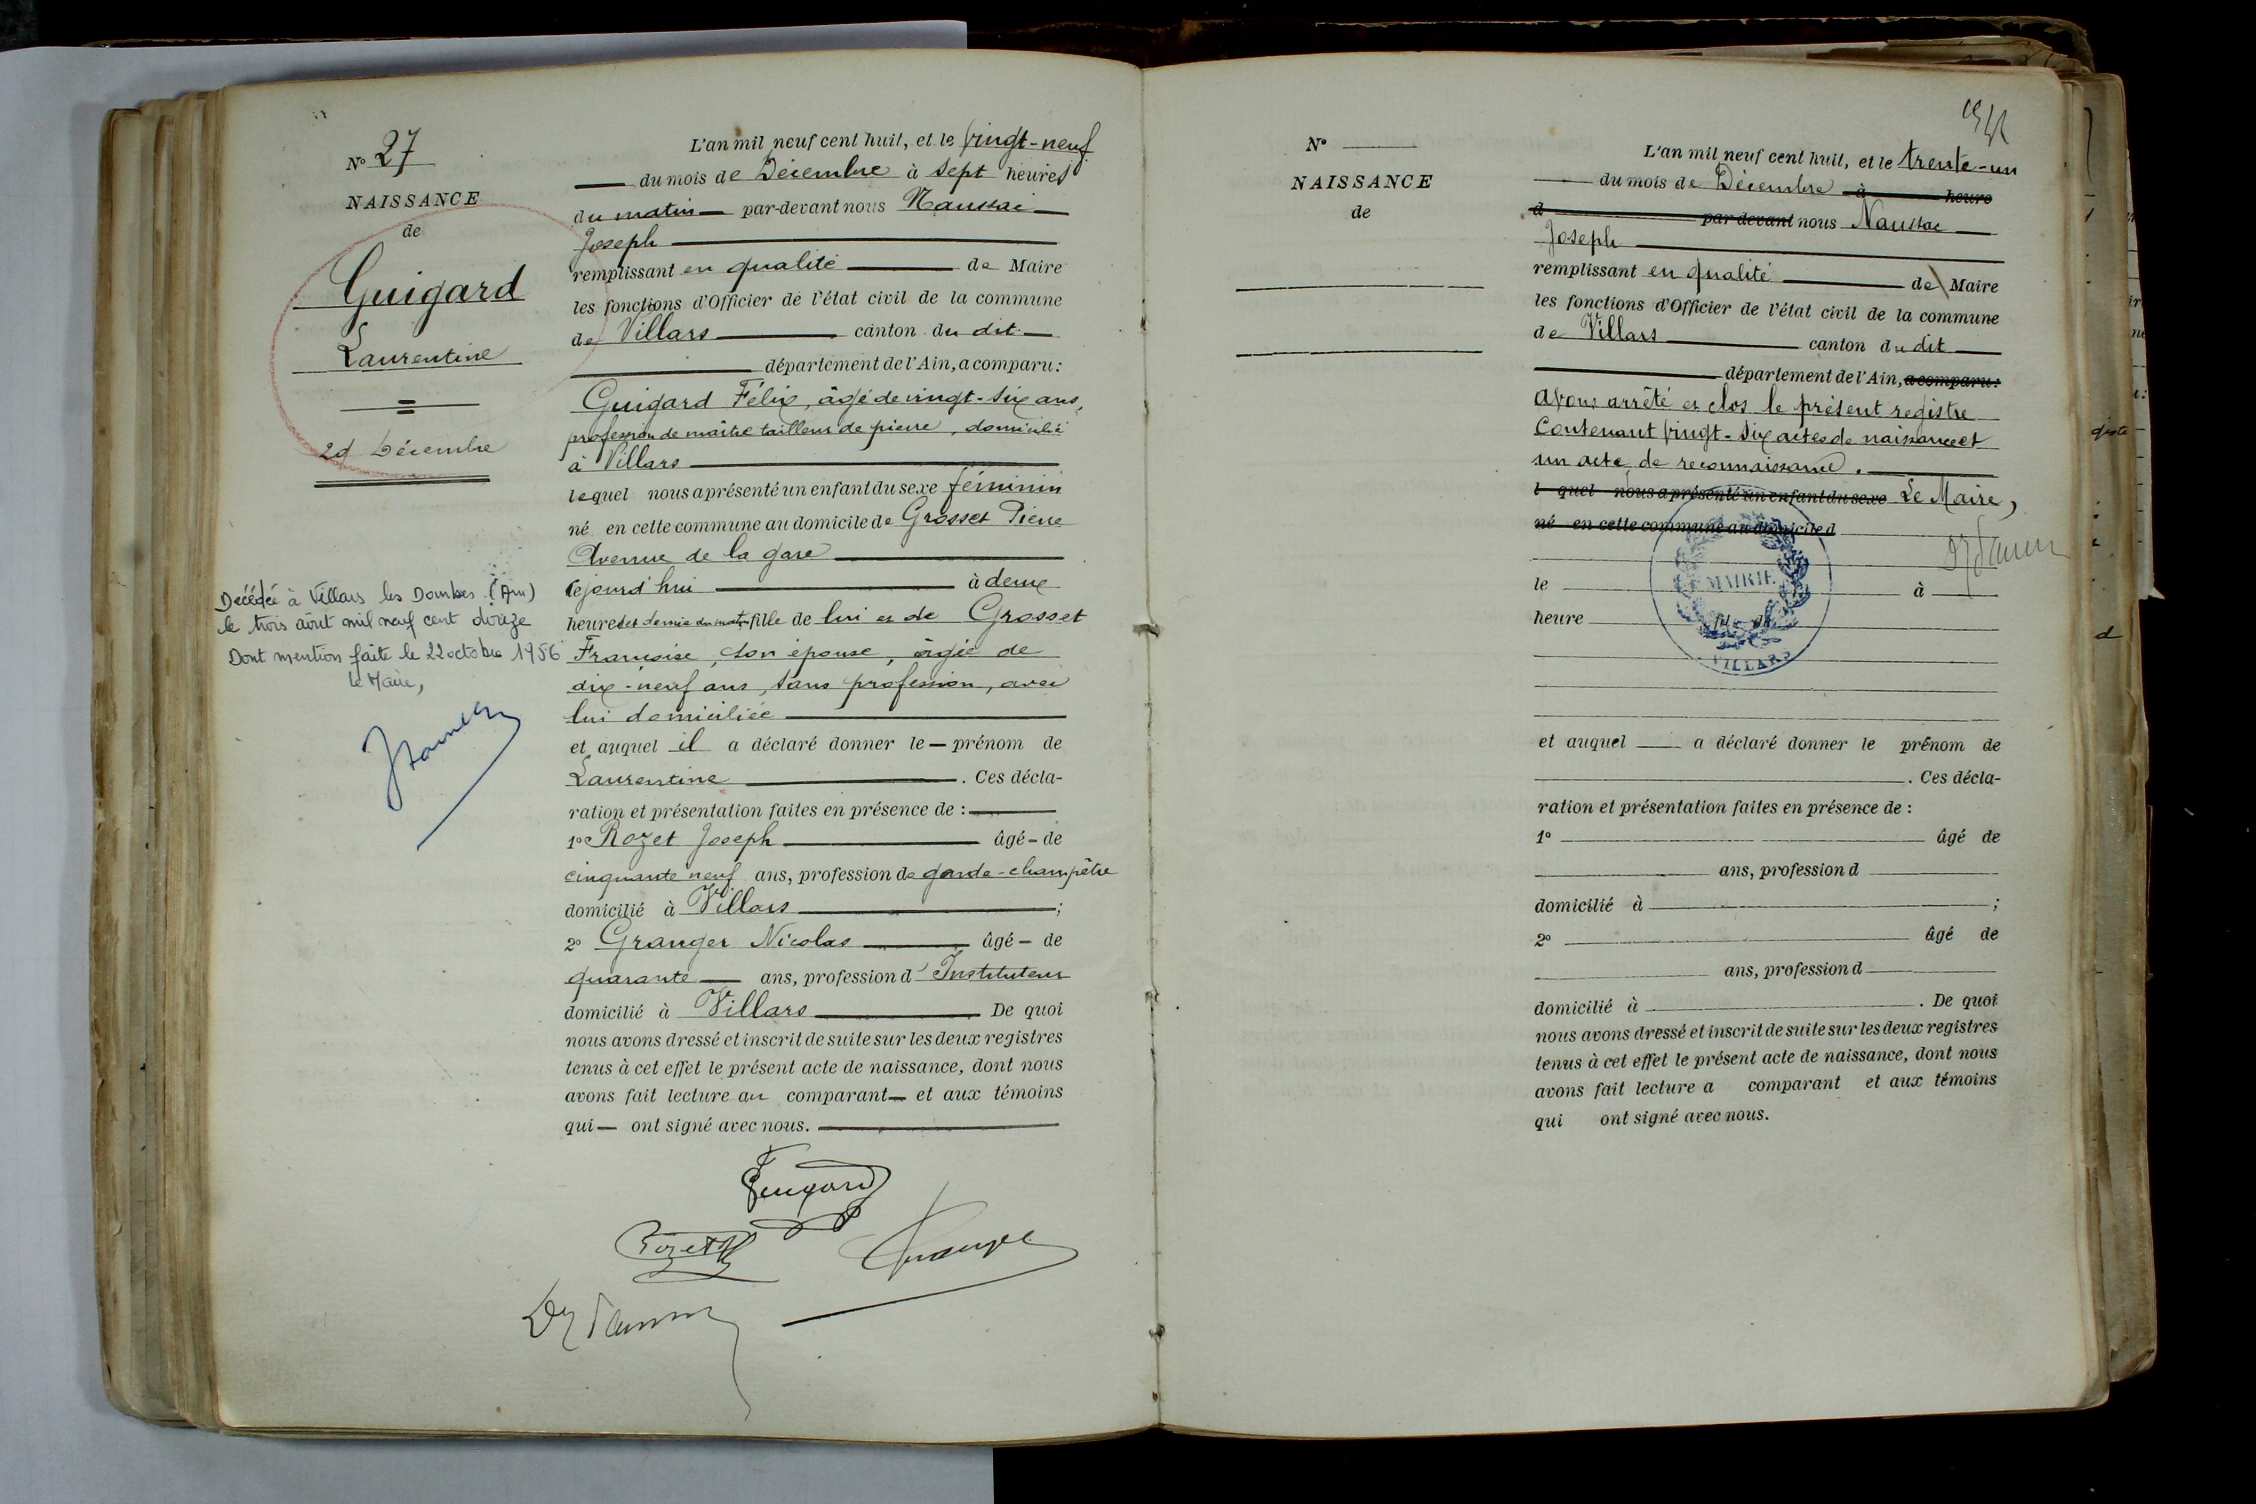 N° 27
NAISSANCE
de
Guigard
Laurentine
29 Décembre
Décédée à Villars les Dombes (Ain)
le trois août mil neuf cent douze
Dont mention faite le 22 octobre 1956
le Maire,
L'an mil neuf cent huit, et le vingt-neuf
du mois de Décembre à sept heures
du matin par-devant nous Naussac
Joseph
remplissant en qualité de Maire
les fonctions d'Officier de l'état civil de la commune
de Villars canton du dit
département de l'Ain, a comparu :
Guigard Félix, âgé de vingt-six ans,
profession de maître tailleur de pierre, domicilié
à Villars
lequel nous a présenté un enfant du sexe féminin
né en cette commune au domicile de Grosset Pierre
Avenue de la gare
cejourd'hui à deux
heures et demie du matin fille de lui et de Grosset
Françoise, son épouse, âgée de
dix-neuf ans, sans profession, avec
lui domiciliée
et auquel il a déclaré donner le prénom de
Laurentine . Ces décla-
ration et présentation faites en présence de :
1° Rozet Joseph âgé de
cinquante neuf ans, profession de garde-champêtre
domicilié à Villars ;
2° Granger Nicolas âgé de
quarante ans, profession d'Instituteur
domicilié à Villars De quoi
nous avons dressé et inscrit de suite sur les deux registres
tenus à cet effet le présent acte de naissance, dont nous
avons fait lecture au comparant et aux témoins
qui ont signé avec nous.
Guigard
Rozet
Granger
N°
NAISSANCE
de
L'an mil neuf cent huit, et le trente-un
du mois de Décembre à heure
d par devant nous Naussac
Joseph
remplissant en qualité de Maire
les fonctions d'Officier de l'état civil de la commune
de Villars canton du dit
département de l'Ain, a comparu :
avons arrêté et clos le présent registre
contenant vingt-six actes de naissance et
un acte de reconnaissance.
l quel nous a présenté un enfant du sexe Le Maire,
né en cette commune au domicile d
MAIRIE
VILLARS
le à
heure
et auquel a déclaré donner le prénom de
. Ces décla-
ration et présentation faites en présence de :
1° âgé de
ans, profession d
domicilié à ;
2° âgé de
ans, profession d
domicilié à . De quoi
nous avons dressé et inscrit de suite sur les deux registres
tenus à cet effet le présent acte de naissance, dont nous
avons fait lecture a comparant et aux témoins
qui ont signé avec nous.